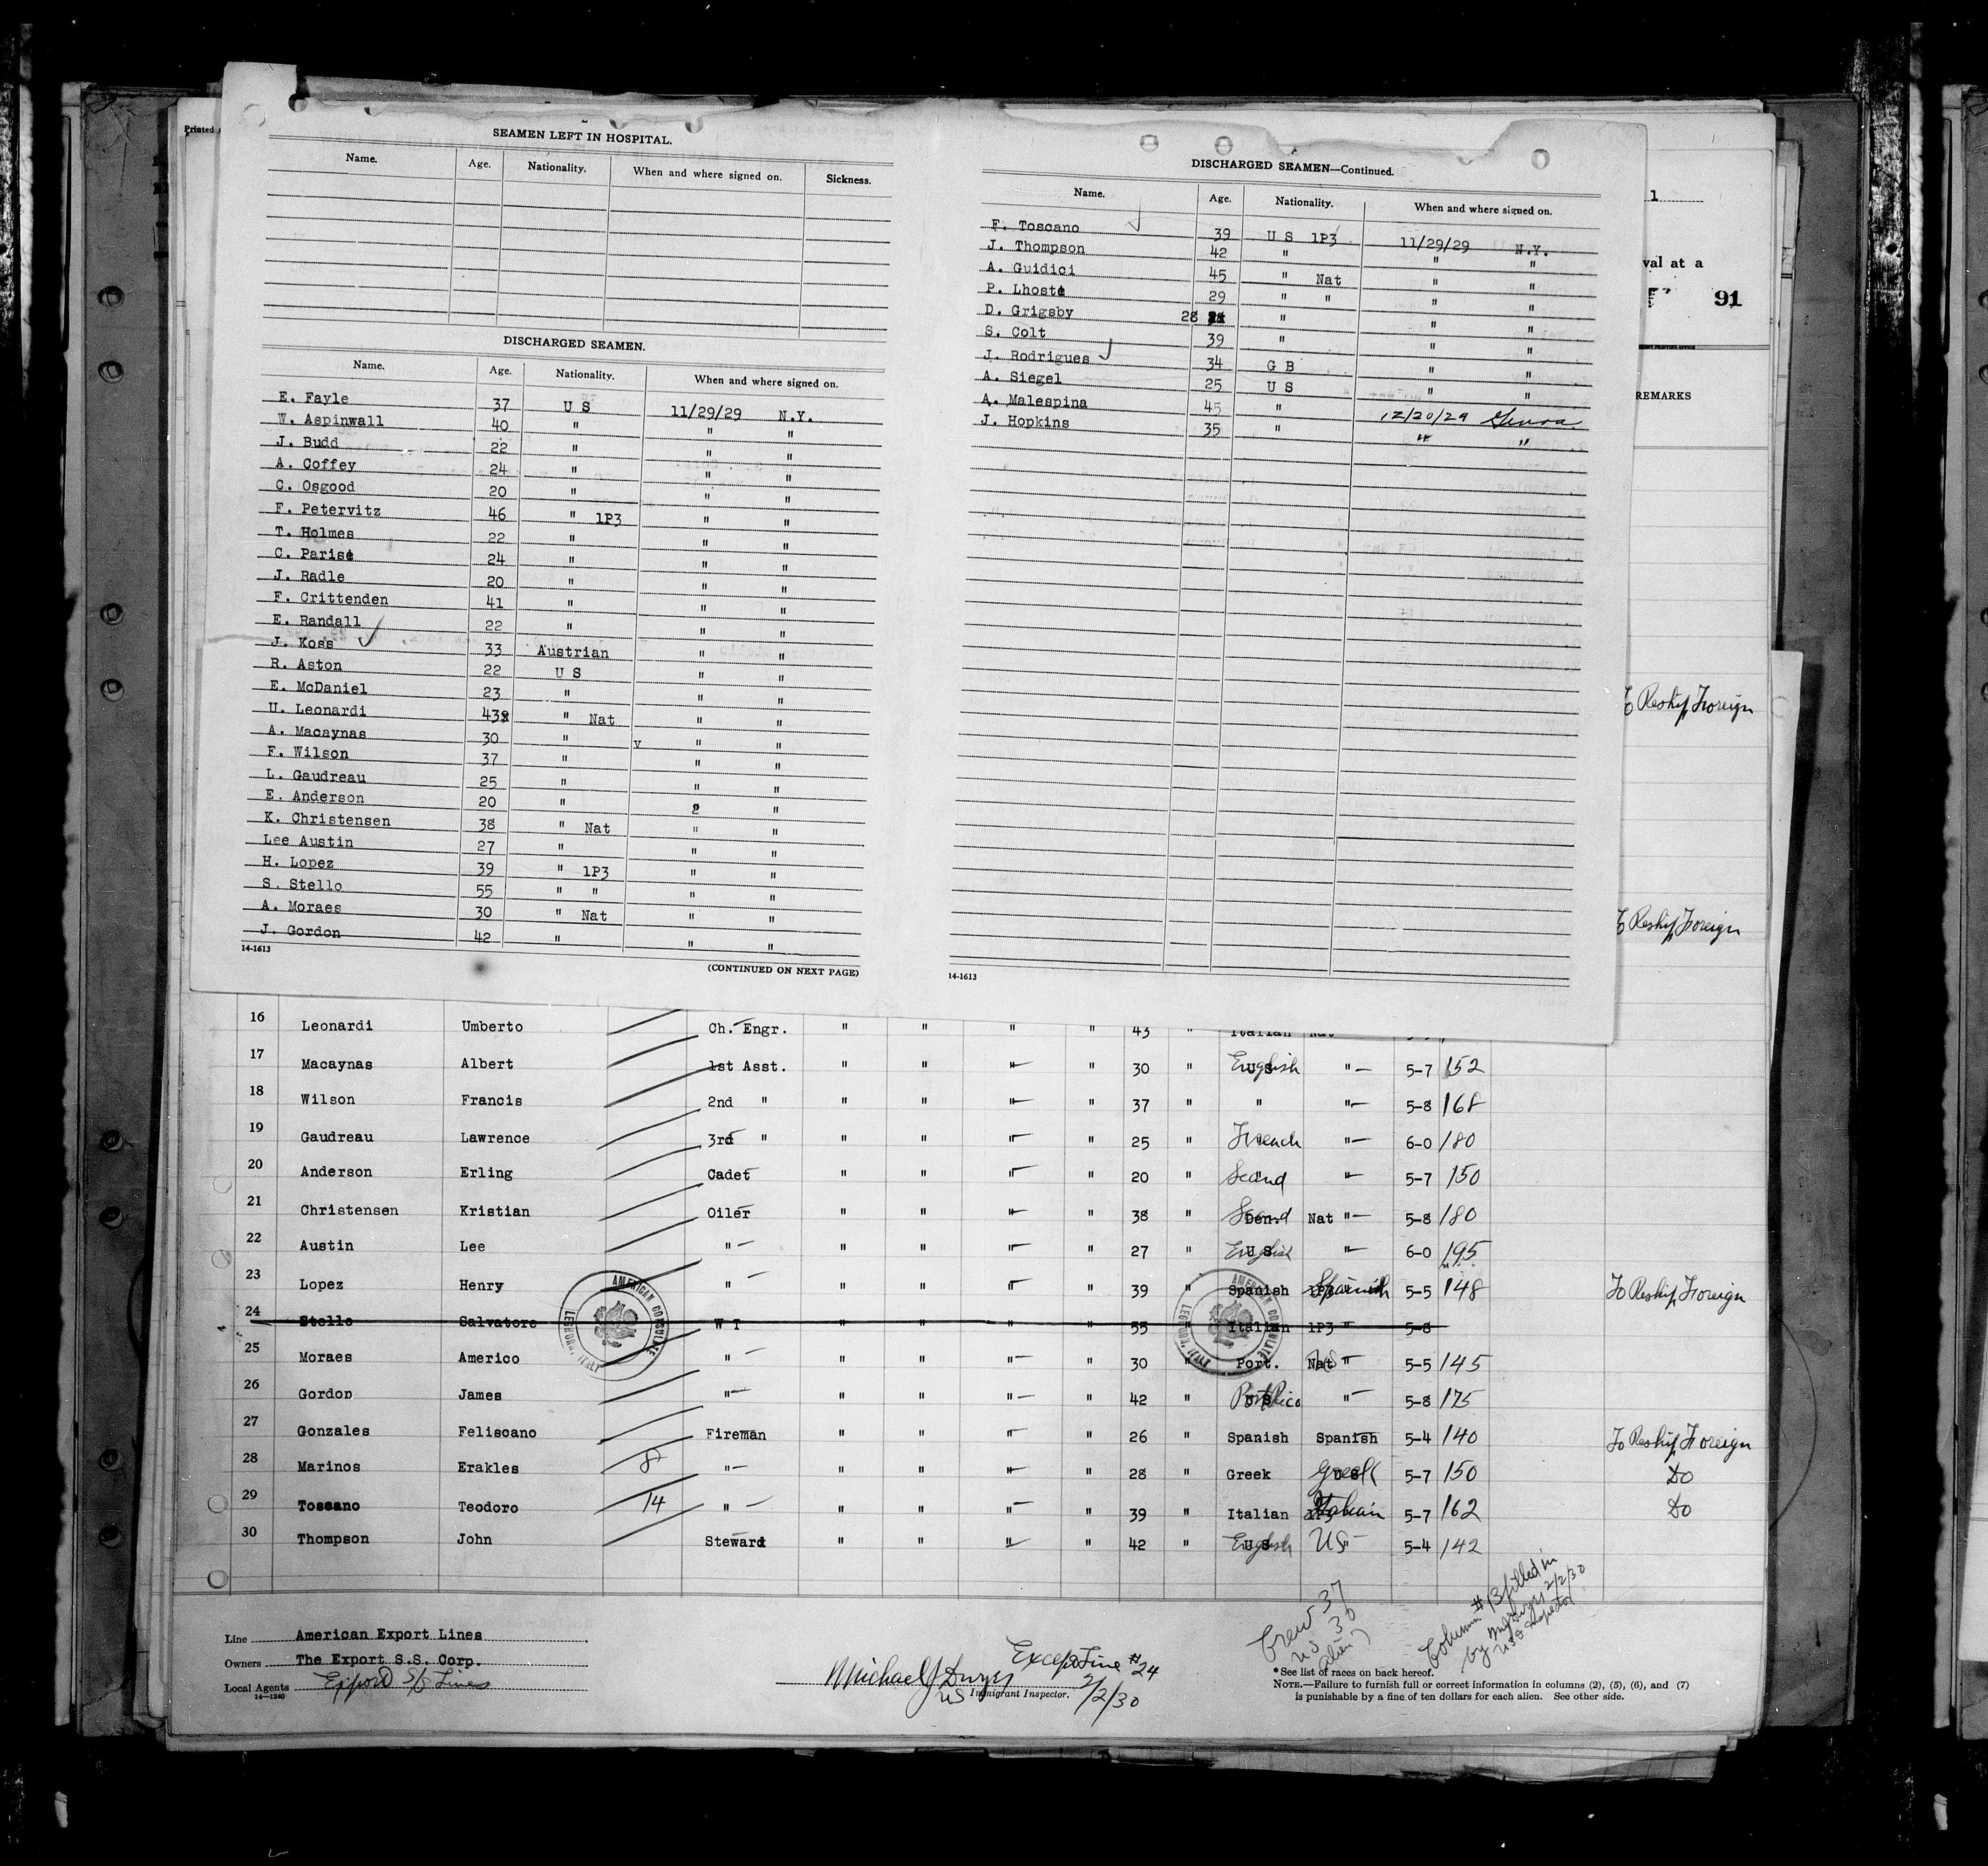 Printed
SEAMEN LEFT IN HOSPITAL.
Name. Age. Nationality. When and where signed on. Sickness.
DISCHARGED SEAMEN.
Name. Age. Nationality. When and where signed on.
E. Fayle 37 U S 11/29/29 N.Y.
W. Aspinwall 40 " " "
J. Budd 22 " " "
A. Coffey 24 " " "
C. Osgood 20 " " "
F. Petervitz 46 " 1P3 " "
T. Holmes 22 " " "
C. Parisi 24 " " "
J. Radle 20 " " "
F. Crittenden 41 " " "
E. Randall 22 " " "
J. Koss 33 Austrian " "
R. Aston 22 U S " "
E. McDaniel 23 " " "
U. Leonardi 43 " Nat " "
A. Macaynas 30 " v " "
F. Wilson 37 " " "
L. Gaudreau 25 " " "
E. Anderson 20 " 2 "
K. Christensen 38 " Nat " "
Lee Austin 27 " " "
H. Lopez 39 " 1P3 " "
S. Stello 55 " " " "
A. Moraes 30 " Nat " "
J. Gordon 42 " " "
14-1613
(CONTINUED ON NEXT PAGE)
DISCHARGED SEAMEN—Continued.
Name. Age. Nationality. When and where signed on.
F. Toscano 39 U S 1P3 11/29/29 N.Y.
J. Thompson 42 " " "
A. Guidici 45 " Nat " "
P. Lhoste 29 " " " "
D. Grigsby 28 " " "
S. Colt 39 " "
J. Rodrigues 34 G B " "
A. Siegel 25 U S " "
A. Malespina 45 " 12/20/29 Genoa
J. Hopkins 35 " " "
14-1613
1
val at a
91
REMARKS
To Reship Foreign
To Reship Foreign
16 Leonardi Umberto Ch. Engr. " " " " 43 " Italian Nat
17 Macaynas Albert 1st Asst. " " " " 30 " English " 5-7 152
18 Wilson Francis 2nd " " " " " 37 " " " 5-8 168
19 Gaudreau Lawrence 3rd " " " " " 25 " French " 6-0 180
20 Anderson Erling Cadet " " " " 20 " Scand " 5-7 150
21 Christensen Kristian Oiler " " " " 38 " Scand Den. Nat " 5-8 180
22 Austin Lee " " " " " 27 " English U S " 6-0 195
23 Lopez Henry " " " " " 39 " Spanish 1P3 Spanish 5-5 148 To Reship Foreign
24 Stello Salvatore W T " " " " 55 " Italian 1P3 " 5-8
25 Moraes Americo " " " " " 30 " Port. Nat " 5-5 145
26 Gordon James " " " " " 42 " U S Port Rico " 5-8 175
27 Gonzales Feliscano Fireman " " " " 26 " Spanish Spanish 5-4 140 To Reship Foreign
28 Marinos Erakles 8 " " " " " 28 " Greek U S Greek 5-7 150 Do
29 Toscano Teodoro 14 " " " " " 39 " Italian 1P3 Italian 5-7 162 Do
30 Thompson John Steward " " " " 42 " English U S US " 5-4 142
AMERICAN CONSULATE LEGHORN, ITALY
AMERICAN CONSULATE LEGHORN, ITALY
Line American Export Lines
Owners The Export S.S. Corp.
Local Agents Export S/S Lines
14—1240
Except Line #24
Michael J Dwyer
US Immigrant Inspector.
2/2/30
Crew 37
US 30
Alien 7
Column #13 filled in
by M J Dwyer 2/2/30
US Inspector
*See list of races on back hereof.
NOTE.—Failure to furnish full or correct information in columns (2), (5), (6), and (7)
is punishable by a fine of ten dollars for each alien. See other side.